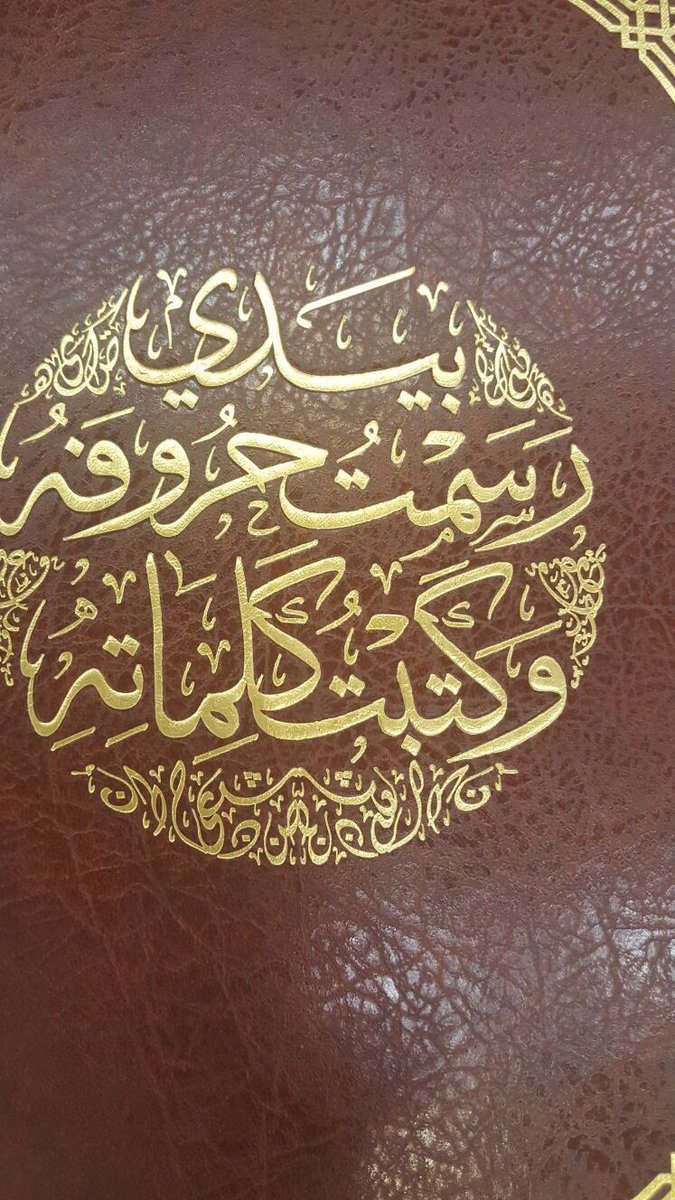 بيدي
رَسَمْتُ حُروفَهُ
وَكَتَبْتُ كَلِماتِهُ